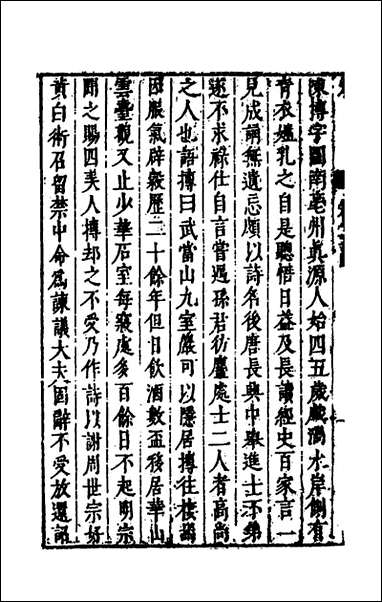 陳摶字圖南亳州眞源人始四五歲戲渦水岸側有
青衣媼乳之自是聰悟日益及長讀經史百家言一
見成誦無遺忘頗以詩名後唐長興中舉進士不第
遂不求祿仕自言嘗遇孫君仿麞處士二人者高尚
之人也語摶曰武當山九室巖可以隱居摶往棲焉
因服氣辟穀歷二十餘年但日飲酒數盃移居華山
雲臺觀又止少華石室每寢處多百餘日不起明宗
聞之賜四美人摶却之不受乃作詩以謝周世宗好
黃白術召留禁中命爲諫議大夫固辭不受放還詔